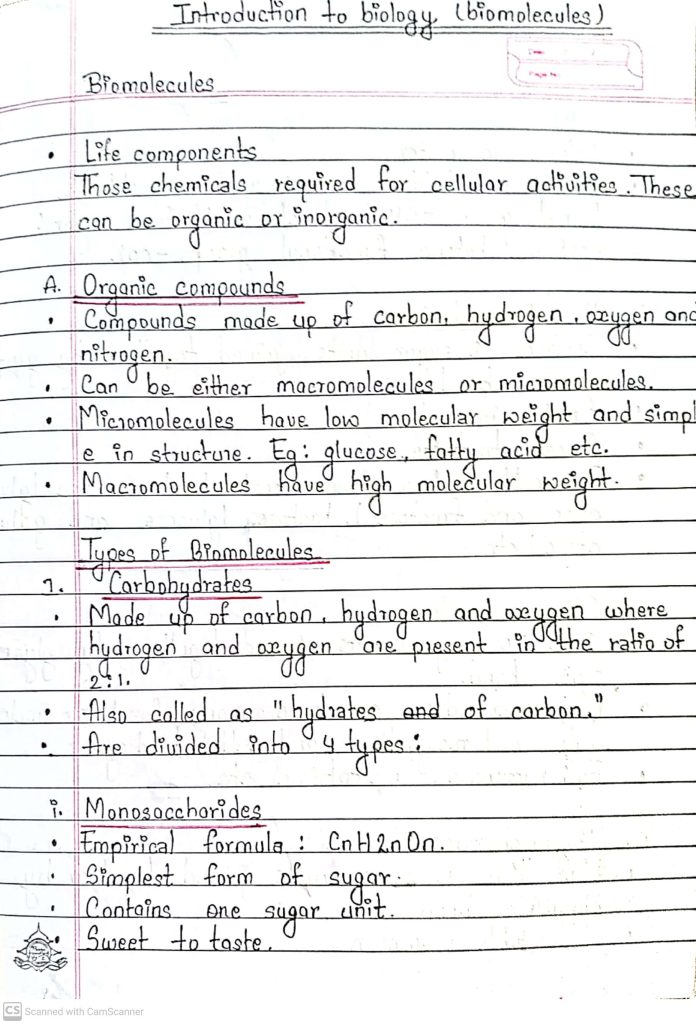 Introduction to biology (biomolecules)
Date:
Page No:
Biomolecules
• Life components
Those chemicals required for cellular activities. These
can be organic or inorganic.
A. Organic compounds
• Compounds made up of carbon, hydrogen, oxygen and
nitrogen.
• Can be either macromolecules or micromolecules.
• Micromolecules have low molecular weight and simpl
e in structure. Eg: glucose, fatty acid etc.
• Macromolecules have high molecular weight.
Types of Biomolecules
1. Carbohydrates
• Made up of carbon, hydrogen and oxygen where
hydrogen and oxygen are present in the ratio of
2:1.
• Also called as "hydrates and of carbon."
• Are divided into 4 types:
i. Monosaccharides
• Empirical formula : CnH2nOn.
• Simplest form of sugar.
• Contains one sugar unit.
• Sweet to taste.
CS Scanned with CamScanner